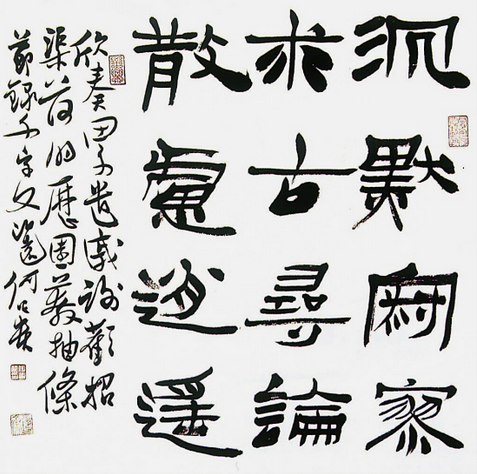 沉默寂寥
求古尋論
散慮逍遙
欣奏累遣慼謝歡招
渠荷的歷園莽抽條
節錄千字文